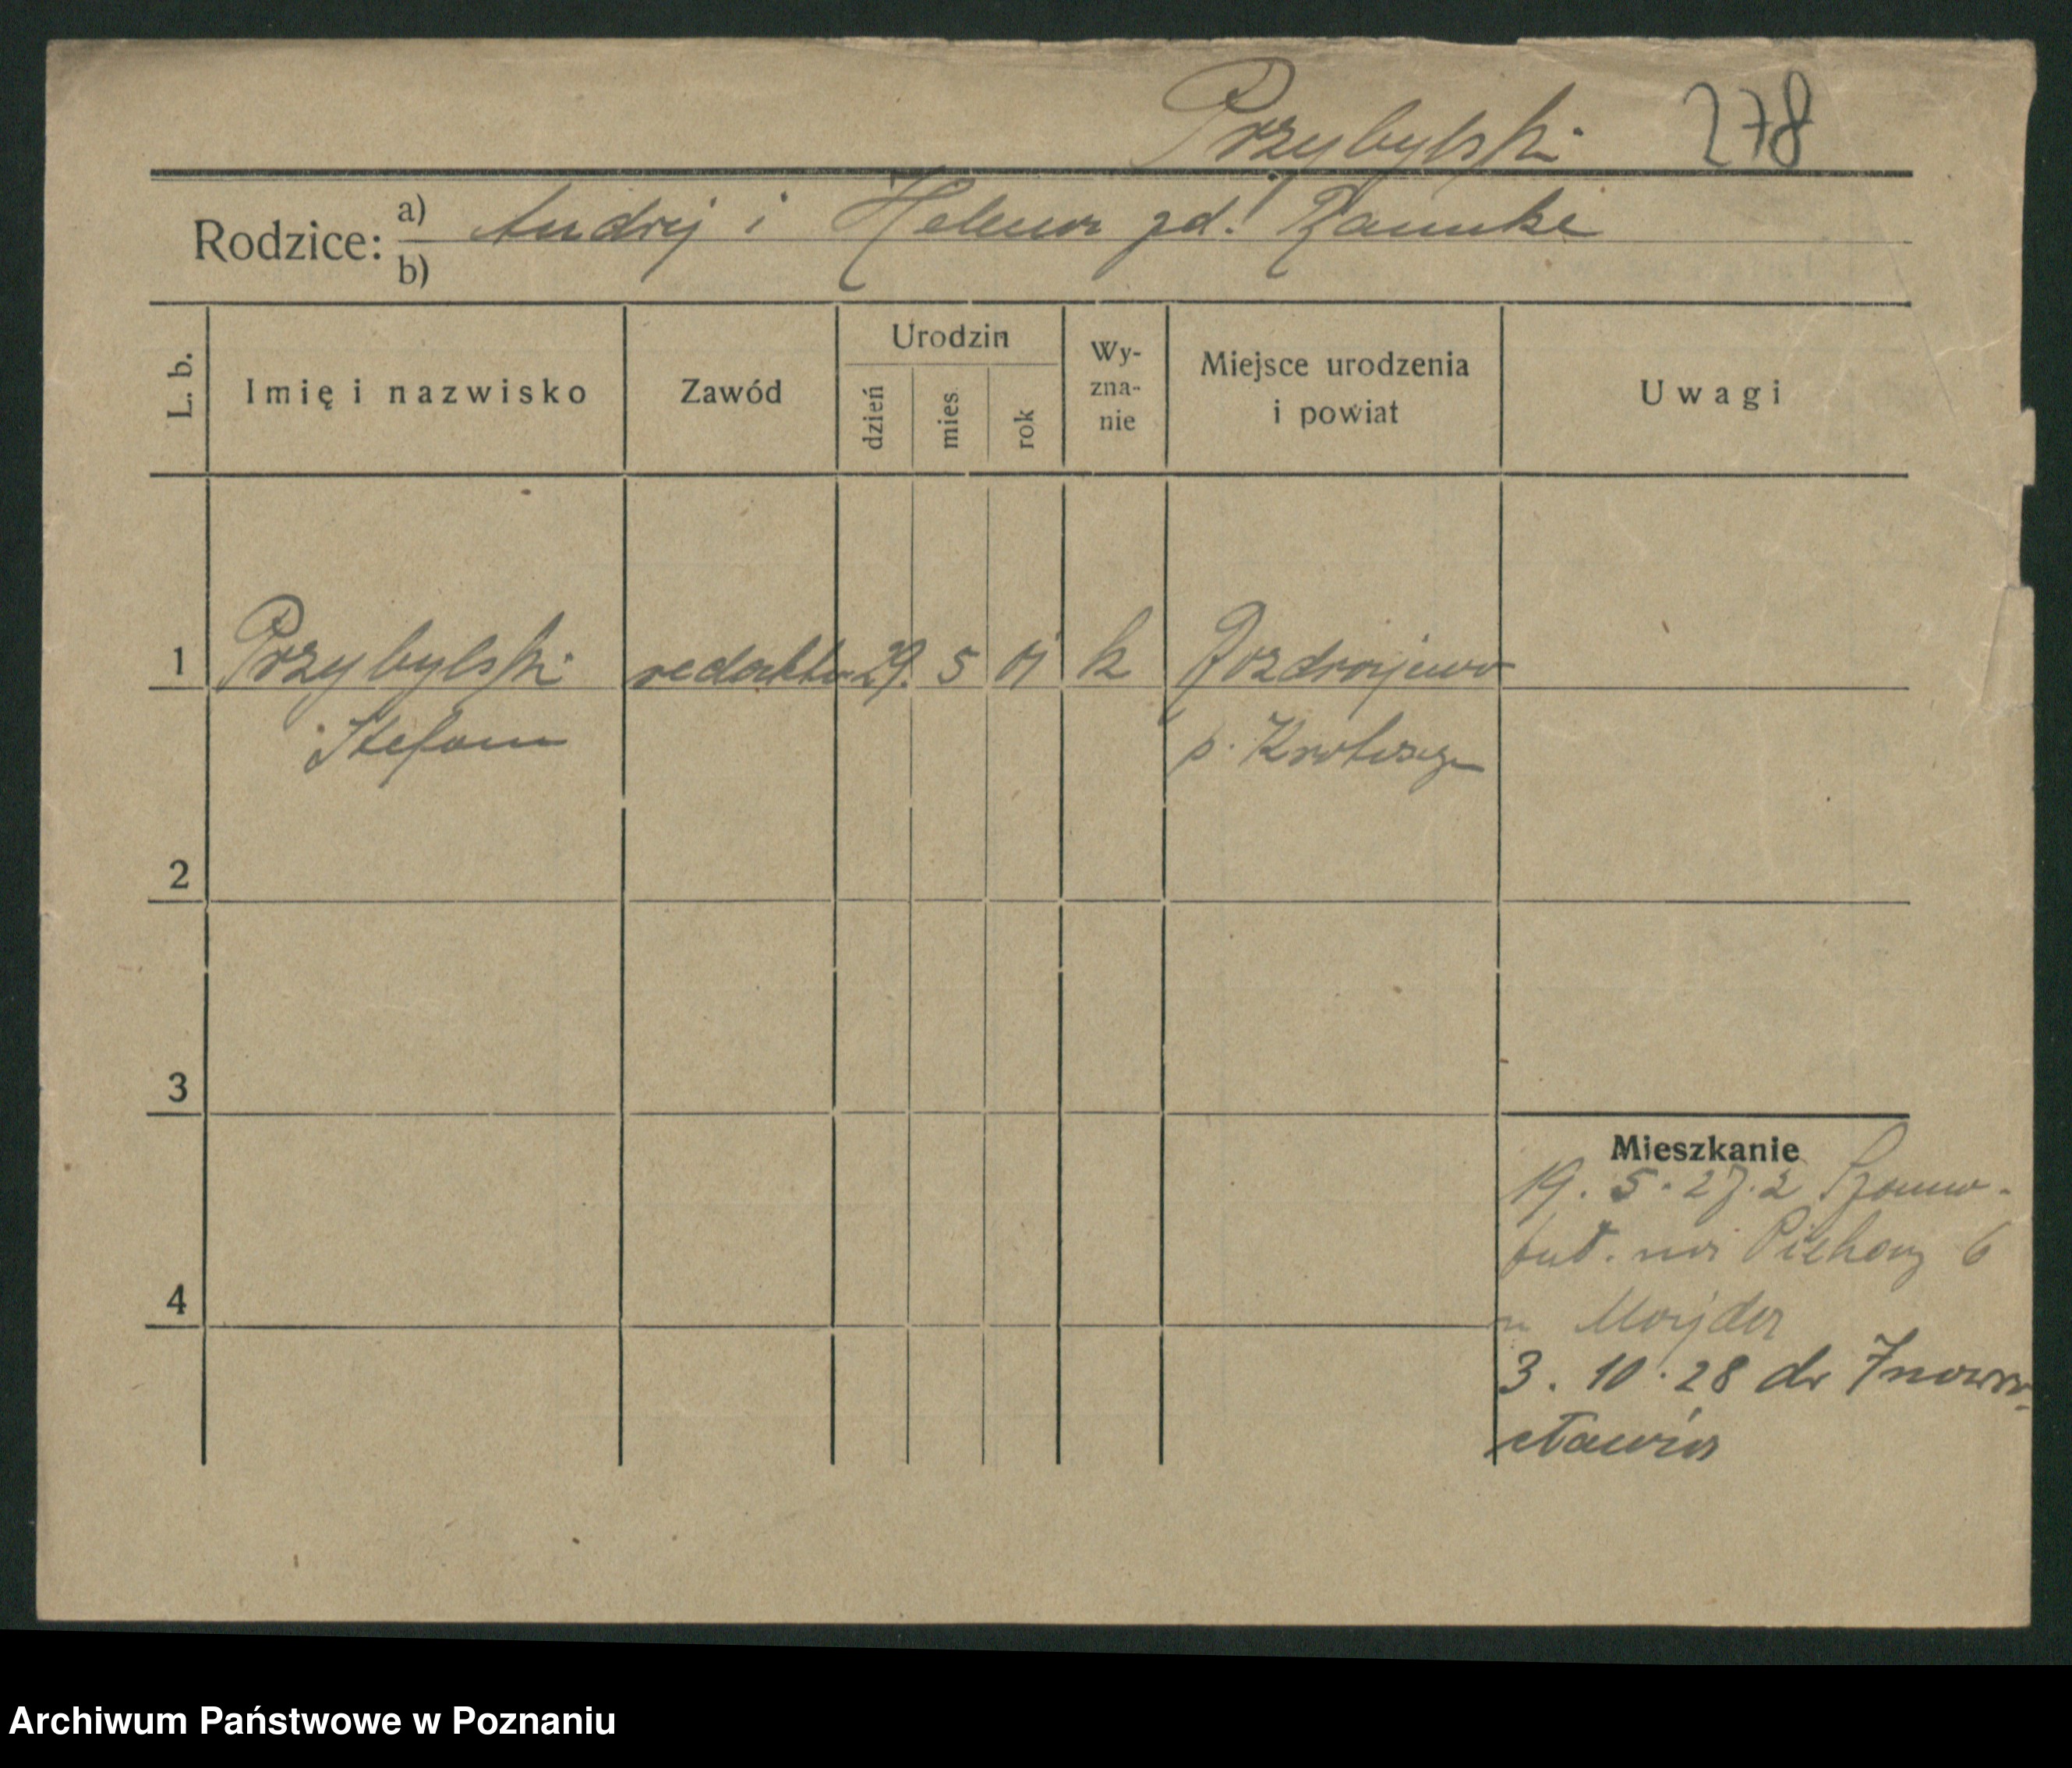 Przybylski 278
Rodzice: a) Andrzej i Helena
b)
L. b.
Imię i nazwisko
Zawód
Urodzin
dzień
mies
rok
Wy-
zna-
nie
Miejsce urodzenia
i powiat
Uwagi
1 Przybylski redaktor 29. 5 01 k
Stefan p. Krotoszyn
2
3
4
Mieszkanie
19. 5. 27. z
6
3. 10. 28 do Inowro-
cławia
Archiwum Państwowe w Poznaniu